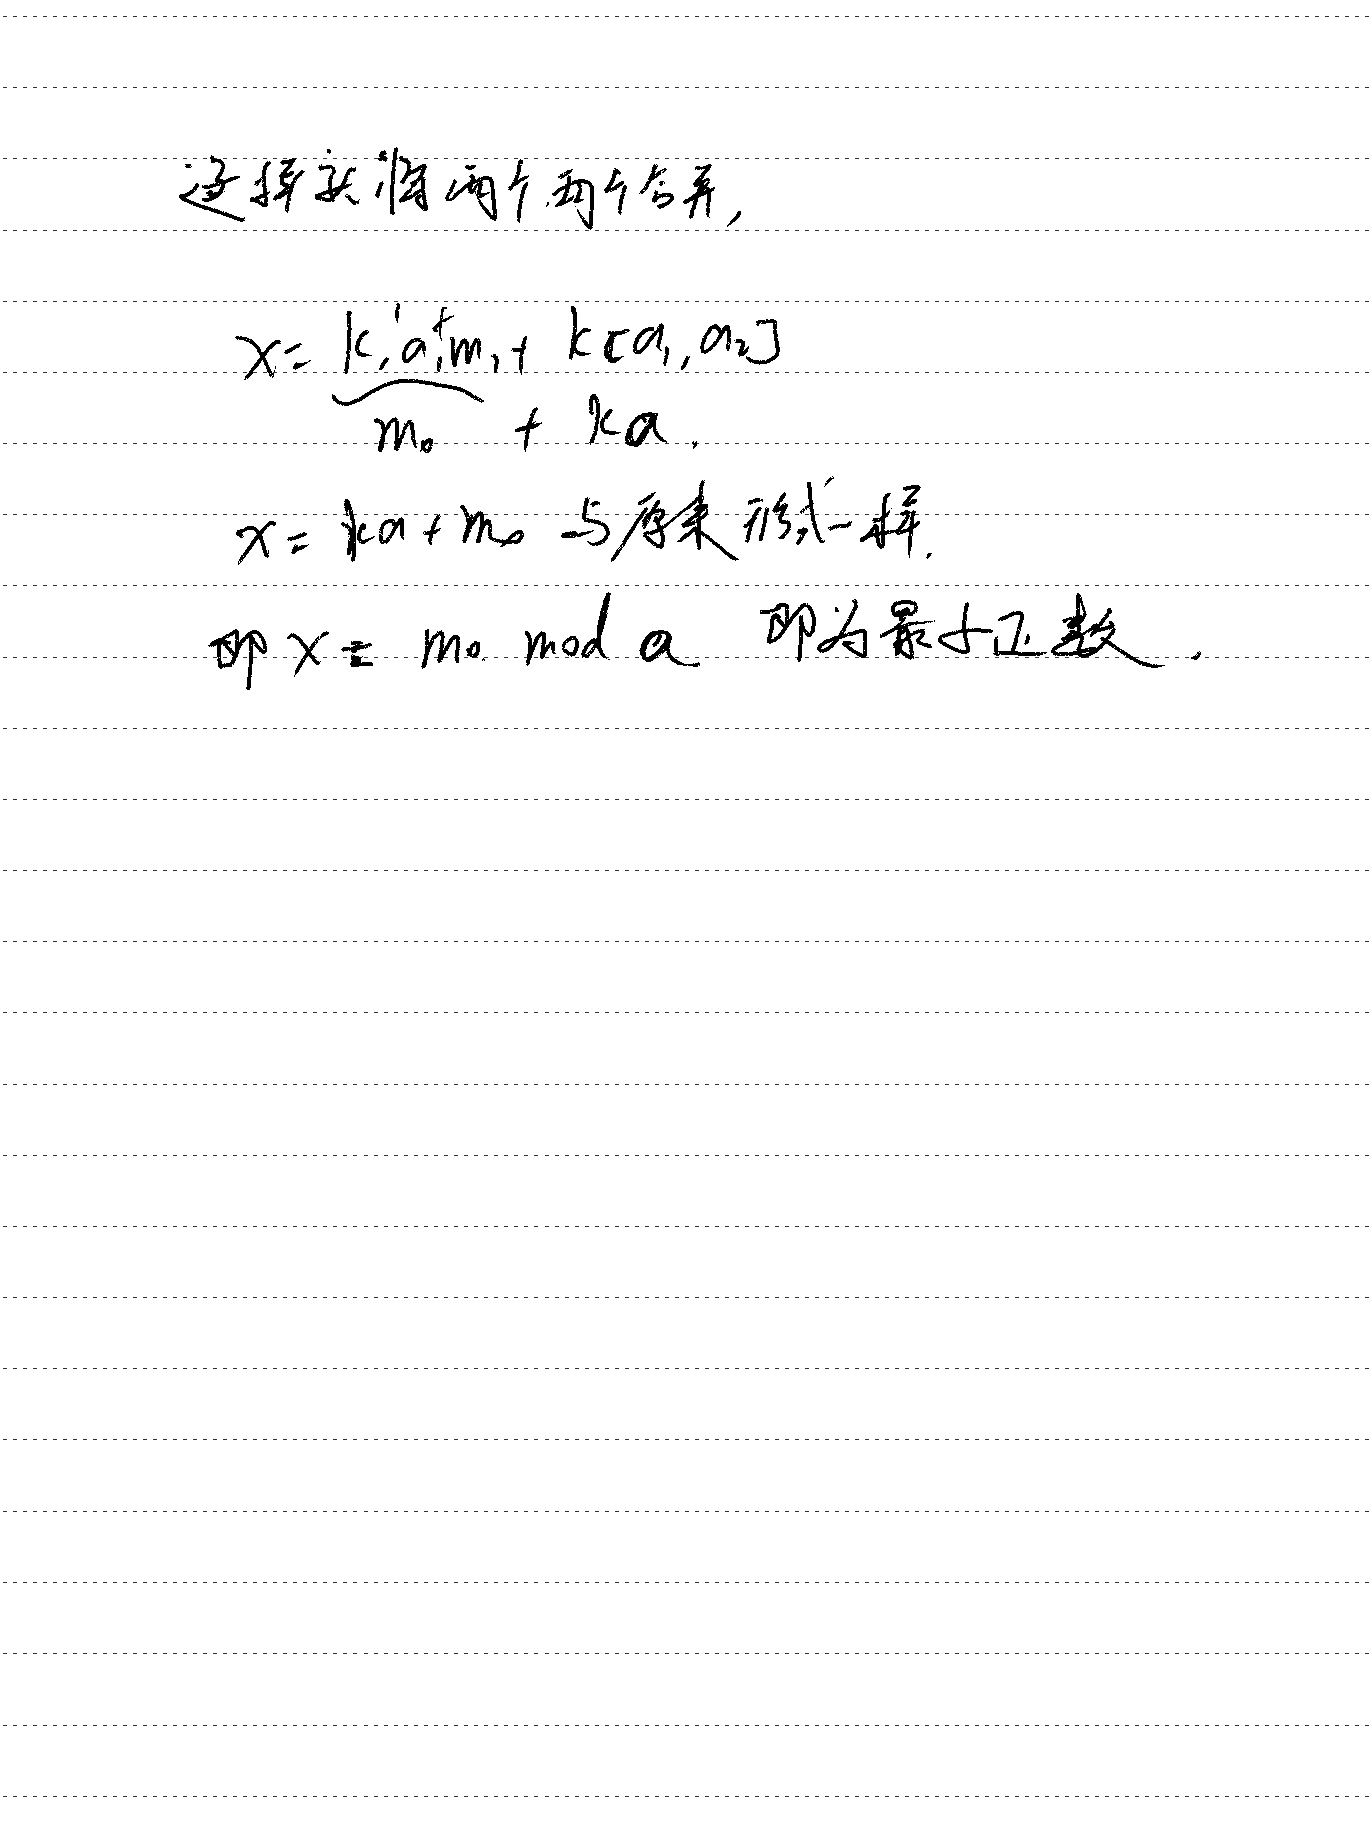 这样就将两个两个合并,
x = k₁'a₁+m₁ + k[a₁, a₂]
m₀ + ka.
x = ka + m₀ 与原来形式一样.
即 x = m₀ mod a 即为最小正数.